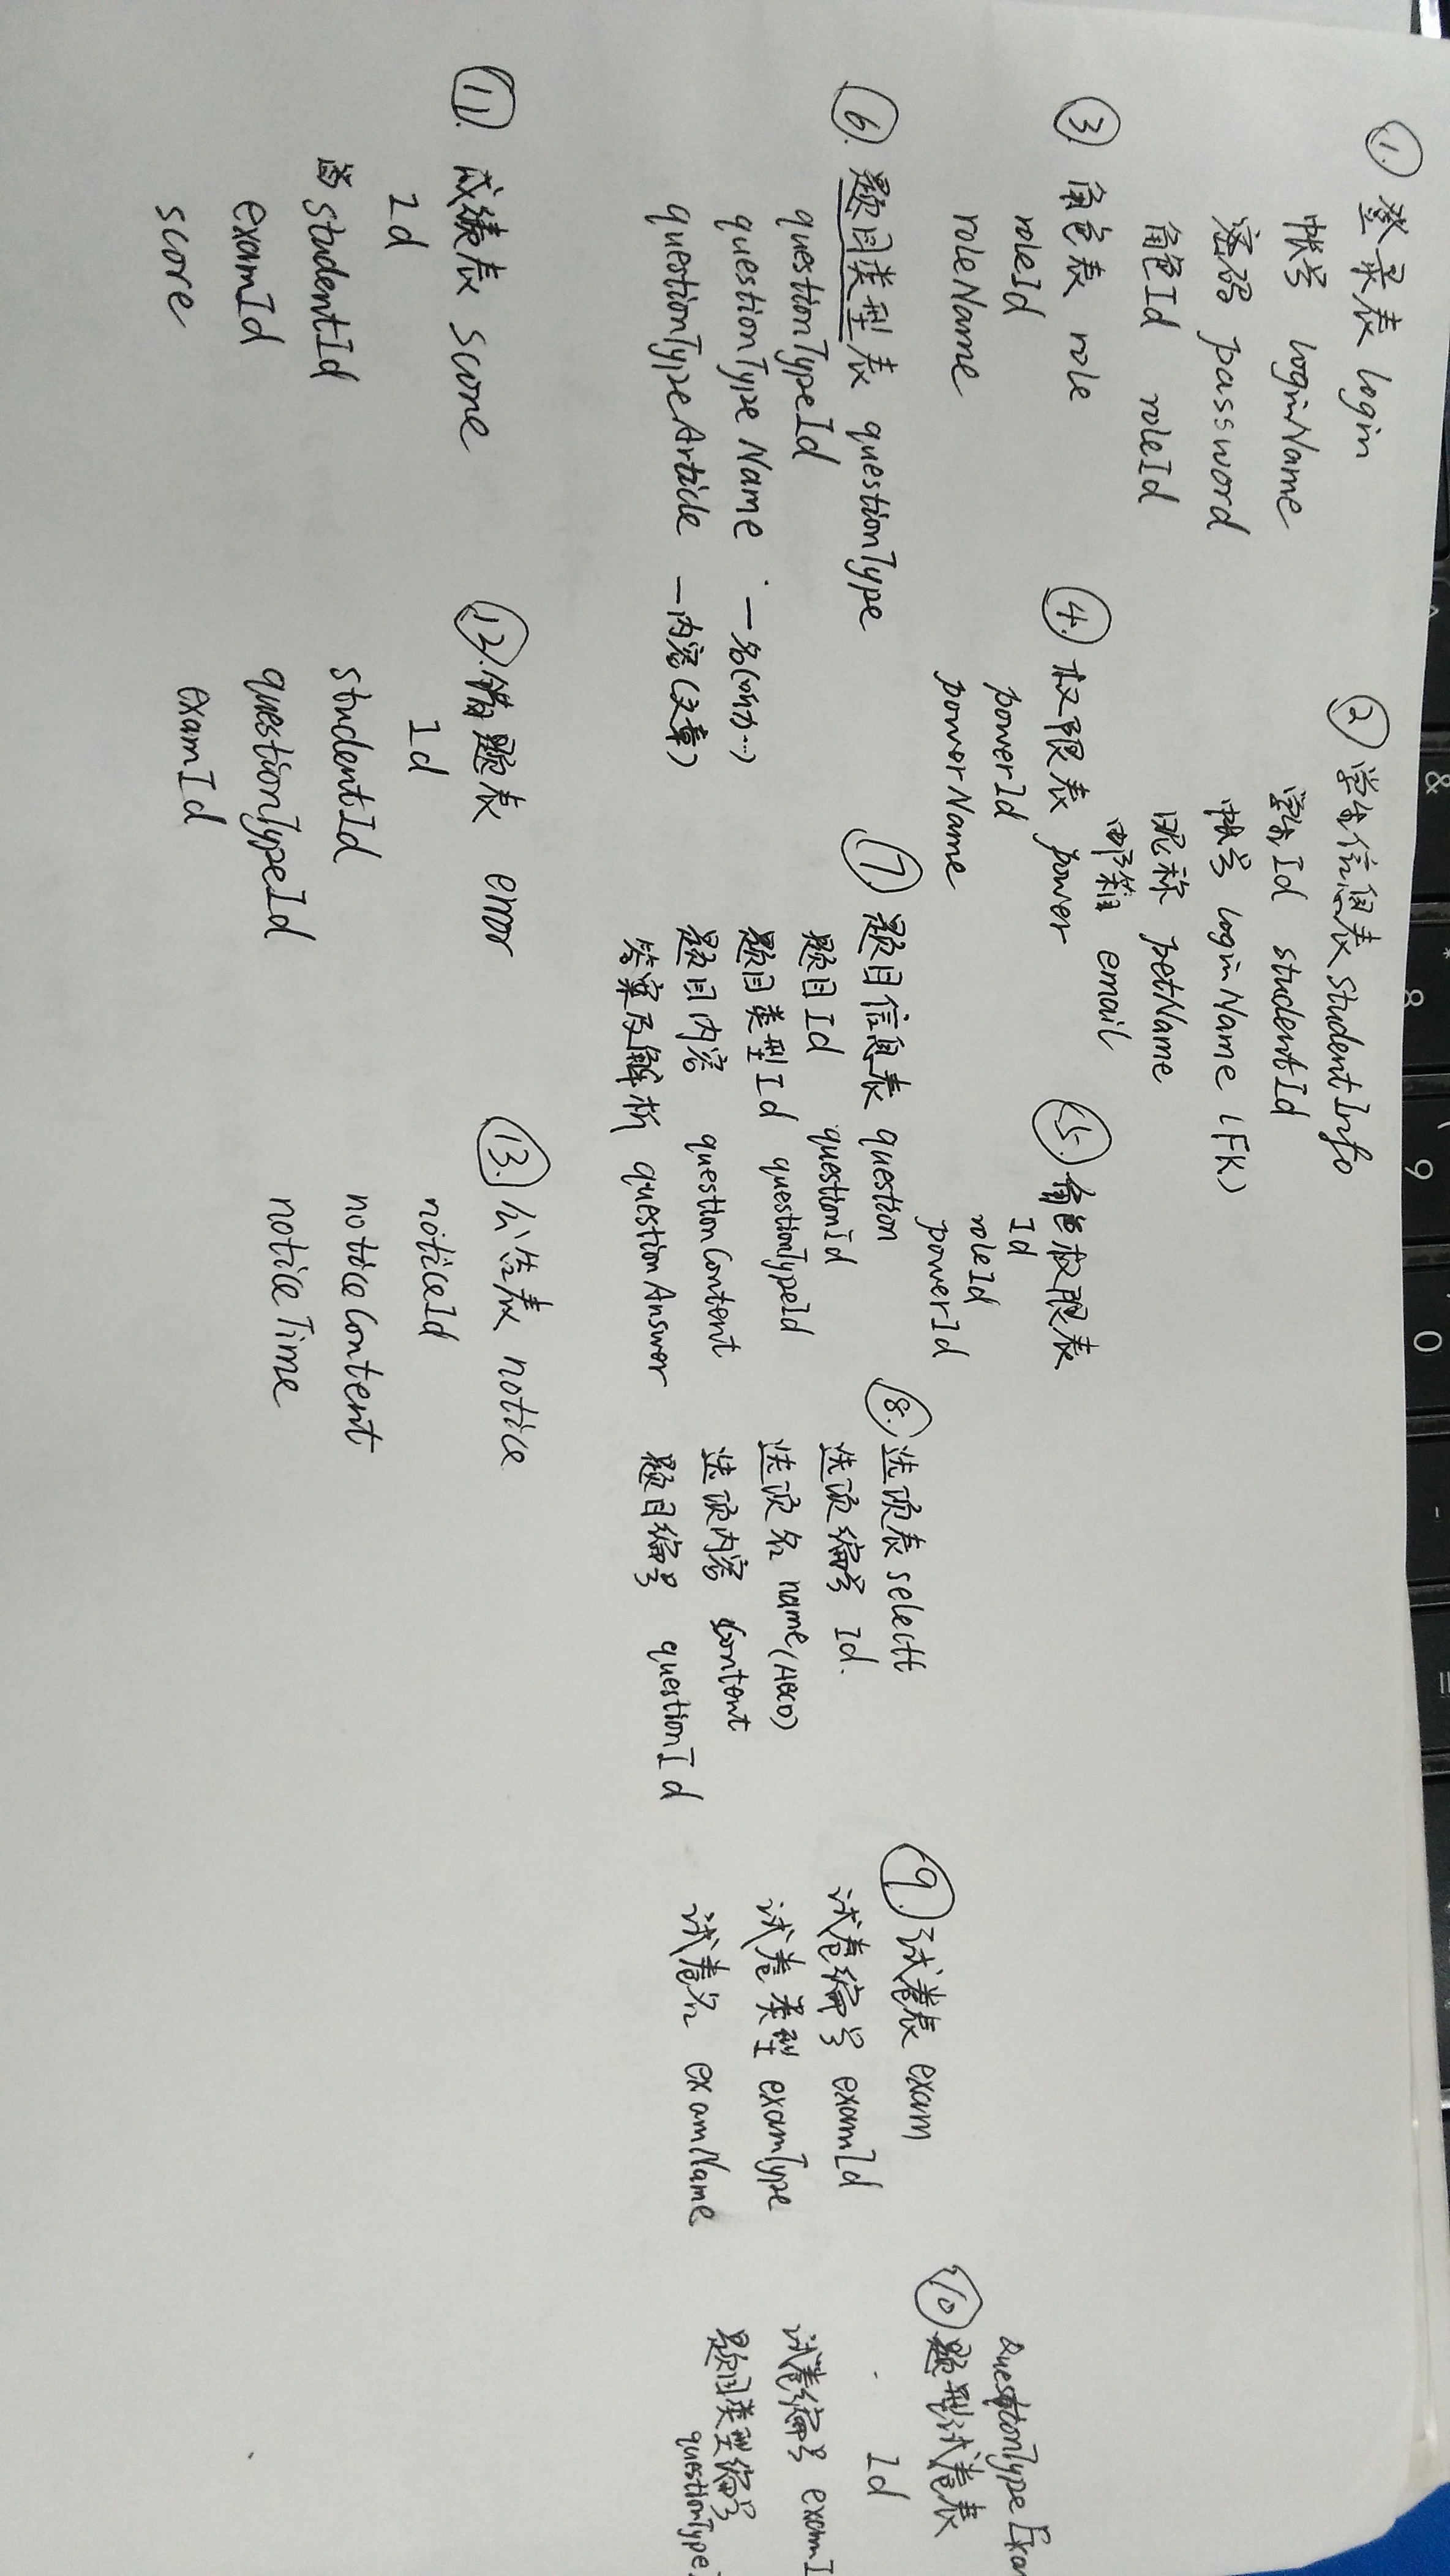 ①. 登录表 login
帐号 loginName
密码 password
角色Id roleId
② 学生信息表 studentInfo
学生Id studentId
帐号 loginName (FK)
昵称 petName
邮箱 email
③ 角色表 role
roleId
roleName
④. 权限表 power
powerId
powerName
⑤. 角色权限表
Id
roleId
powerId
⑥. 题目类型表 questionType
questionTypeId
questionTypeName — 名(听力…)
questionTypeArticle — 内容(文章)
⑦. 题目信息表 question
题目Id questionId
题目类型Id questionTypeId
题目内容 questionContent
答案及解析 questionAnswer
⑧. 选项表 selectt
选项编号 Id.
选项名 name(ABCD)
选项内容 content
题目编号 questionId
⑨. 试卷表 exam
试卷编号 examId
试卷类型 examType
试卷名 examName
questionTypeExa
⑩ 题型试卷表
Id
试卷编号 examI
题目类型编号
questionType
⑪. 成绩表 score
Id
studentId
examId
score
⑫. 错题表 error
Id
studentId
questionTypeId
examId
⑬. 公告表 notice
noticeId
noticeContent
noticeTime
& 8 * 9 ( 0 - =